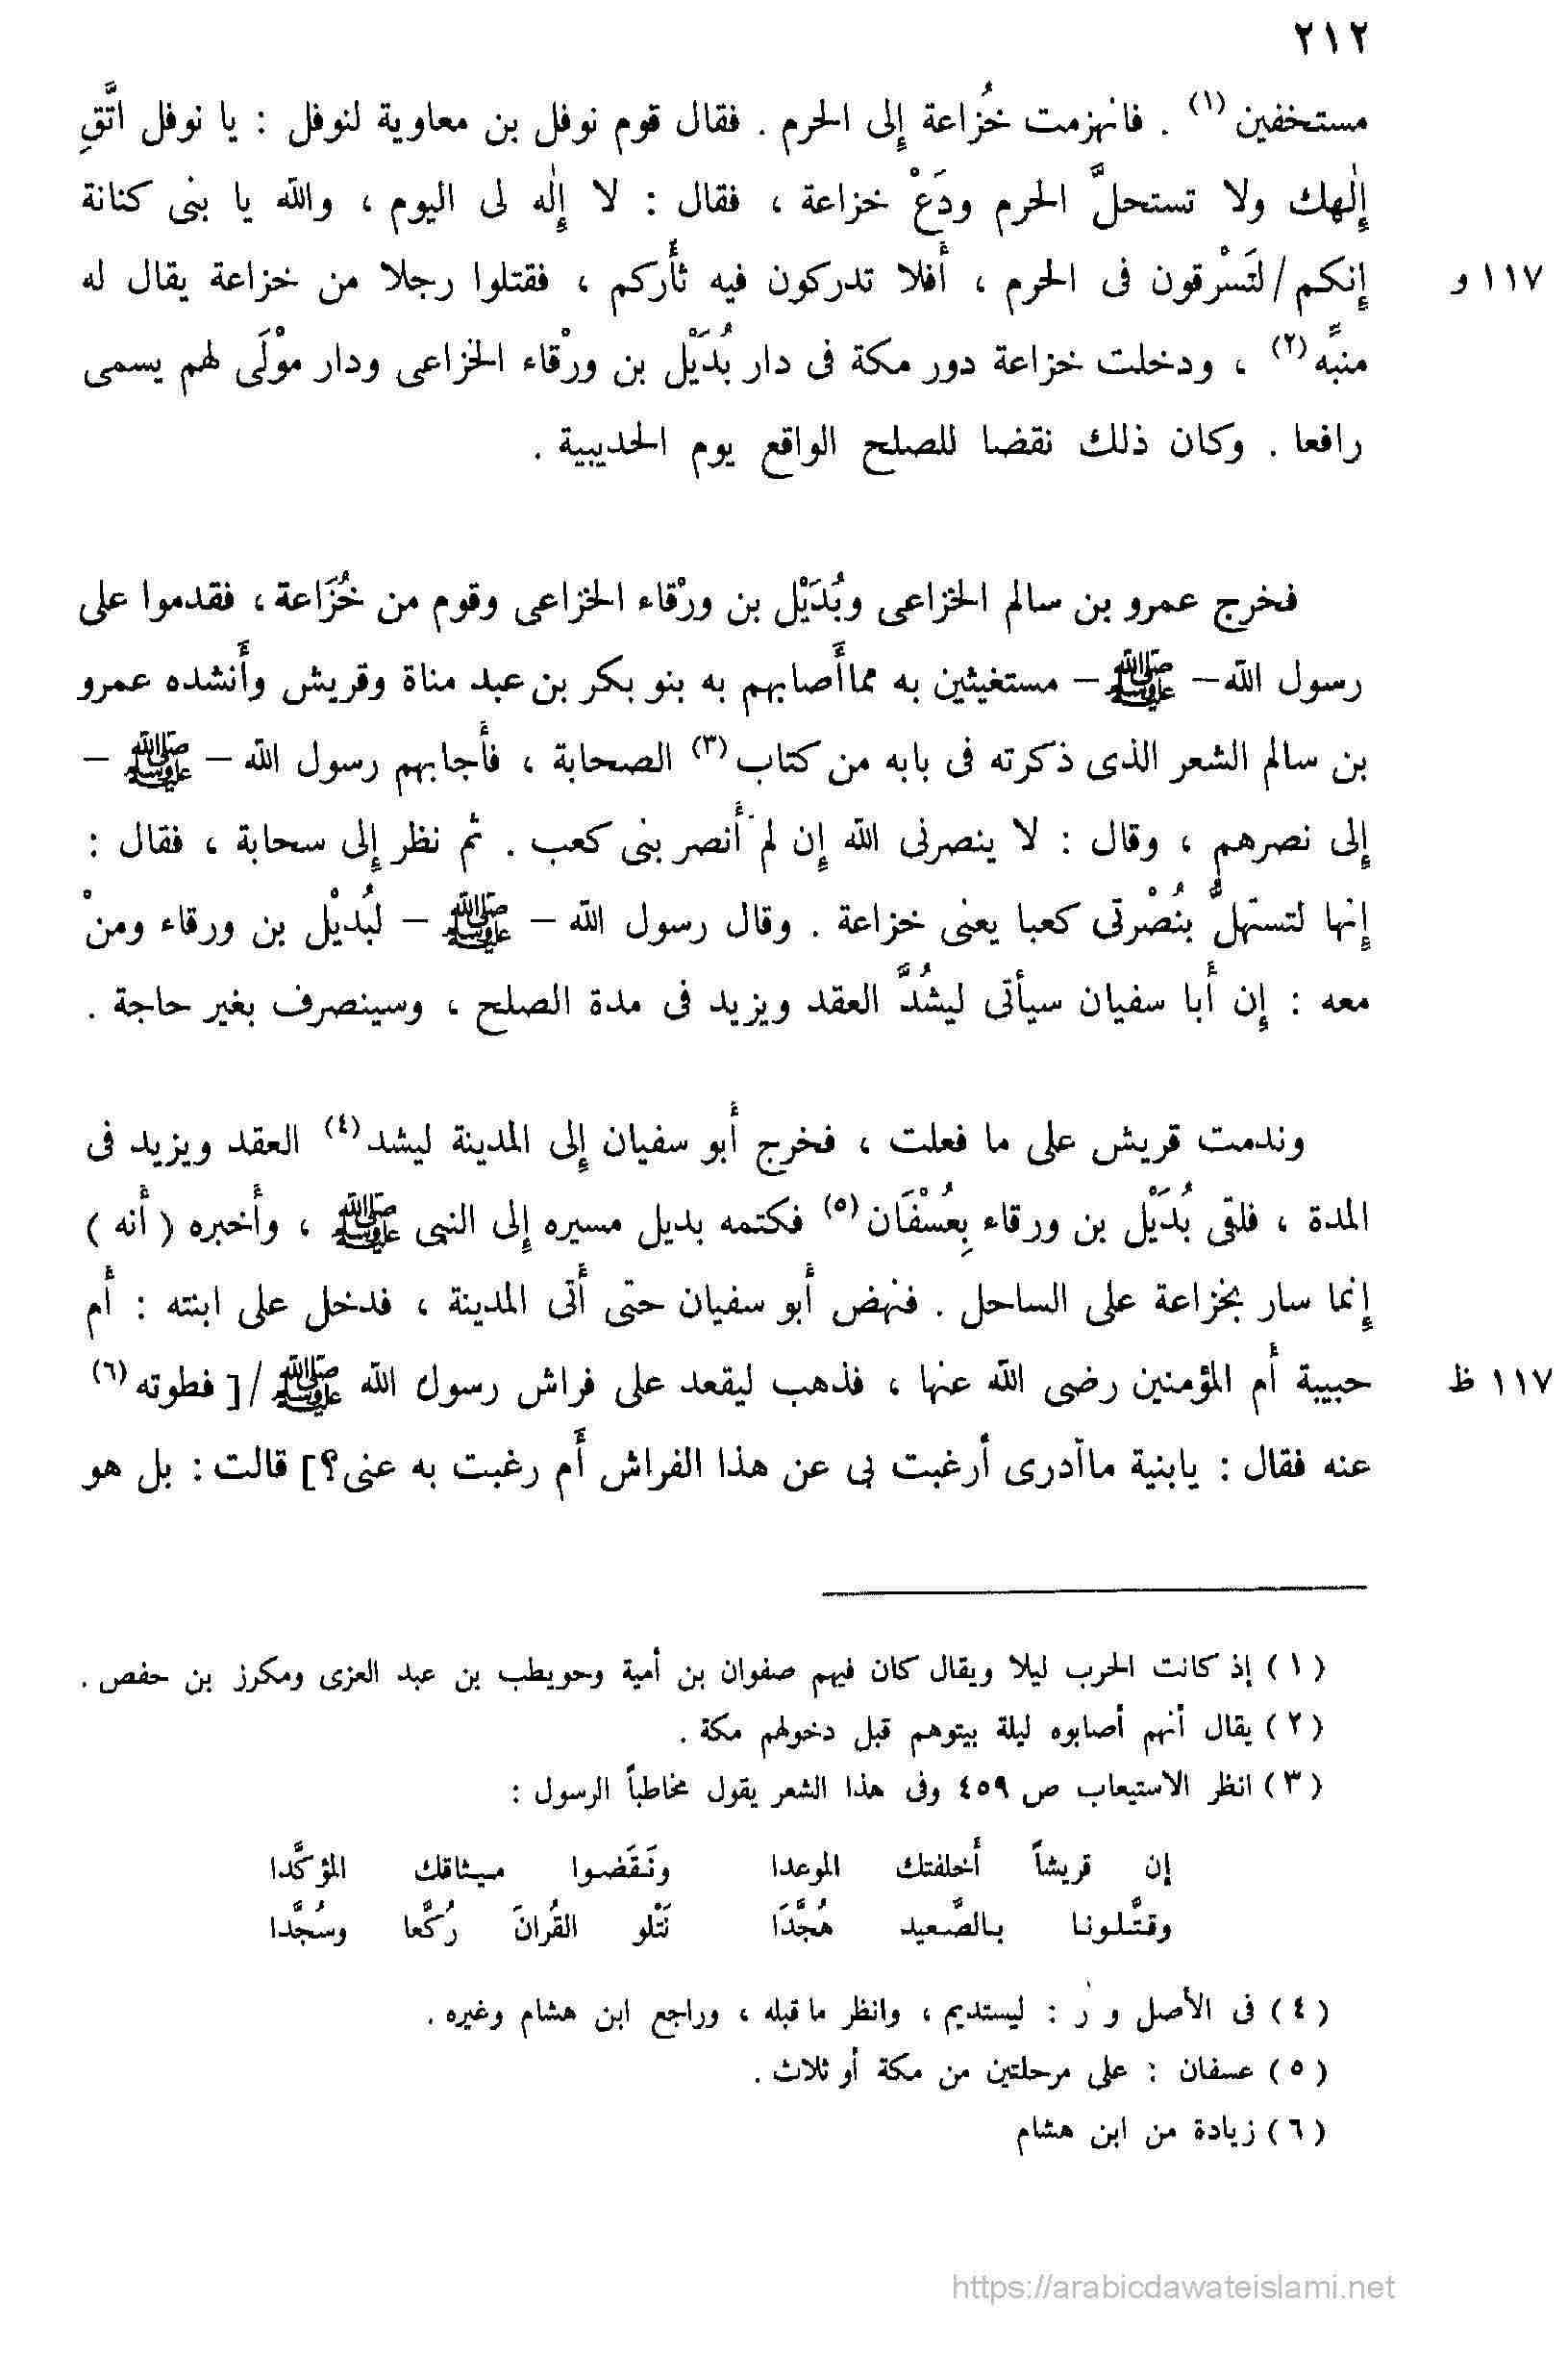 ٢١٢
مستخفين (١) . فانهزمت خُزاعة إلى الحرم . فقال قوم نوفل بن معاوية لنوفل : يا نوفل اتَّقِ
إلٰهك ولا تستحلَّ الحرم ودَعْ خزاعة ، فقال : لا إلٰه لى اليوم ، والله يا بنى كنانة
إنكم / لتَسْرقون فى الحرم ، أفلا تدركون فيه ثأركم ، فقتلوا رجلا من خزاعة يقال له ١١٧ و
منبِّه (٢) ، ودخلت خزاعة دور مكة فى دار بُدَيْل بن ورْقاء الخزاعى ودار موْلَى لهم يسمى
رافعا . وكان ذلك نقضا للصلح الواقع يوم الحديبية .
فخرج عمرو بن سالم الخزاعى وبُدَيْل بن ورْقاء الخزاعى وقوم من خُزَاعة ، فقدموا على
رسول الله – ﷺ – مستغيثين به مما أصابهم به بنو بكر بن عبد مناة وقريش وأنشده عمرو
بن سالم الشعر الذى ذكرته فى بابه من كتاب (٣) الصحابة ، فأجابهم رسول الله – ﷺ –
إلى نصرهم ، وقال : لا ينصرنى الله إن لم أنصر بنى كعب . ثم نظر إلى سحابة ، فقال :
إنها لتستهلُّ بنُصْرتى كعبا يعنى خزاعة . وقال رسول الله – ﷺ – لبُديْل بن ورقاء ومنْ
معه : إن أبا سفيان سيأتى ليشُدَّ العقد ويزيد فى مدة الصلح ، وسينصرف بغير حاجة .
وندمت قريش على ما فعلت ، فخرج أبو سفيان إلى المدينة ليشد (٤) العقد ويزيد فى
المدة ، فلقى بُدَيْل بن ورقاء بِعُسْفَان (٥) فكتمه بديل مسيره إلى النبى ﷺ ، وأخبره ( أنه )
إنما سار بخزاعة على الساحل . فنهض أبو سفيان حتى أتى المدينة ، فدخل على ابنته : أم
حبيبة أم المؤمنين رضى الله عنها ، فذهب ليقعد على فراش رسول الله ﷺ / [ فطوته (٦) ١١٧ ظ
عنه فقال : يابنية ماأدرى أرغبت بى عن هذا الفراش أم رغبت به عنى؟] قالت : بل هو
(١) إذ كانت الحرب ليلا ويقال كان فيهم صفوان بن أمية وحويطب بن عبد العزى ومكرز بن حفص .
(٢) يقال أنهم أصابوه ليلة بيتوهم قبل دخولهم مكة .
(٣) انظر الاستيعاب ص ٤٥٩ وفى هذا الشعر يقول مخاطباً الرسول :
إن قريشاً أخلفتك الموعدا ونَقَضوا ميثاقك المؤكَّدا
وقتَّلونا بالصَّعيد هُجَّدَا نَتْلو القُرانَ رُكَّعا وسُجَّدا
(٤) فى الأصل و ر : ليستديم ، وانظر ما قبله ، وراجع ابن هشام وغيره .
(٥) عسفان : على مرحلتين من مكة أو ثلاث .
(٦) زيادة من ابن هشام
https://arabicdawateislami.net